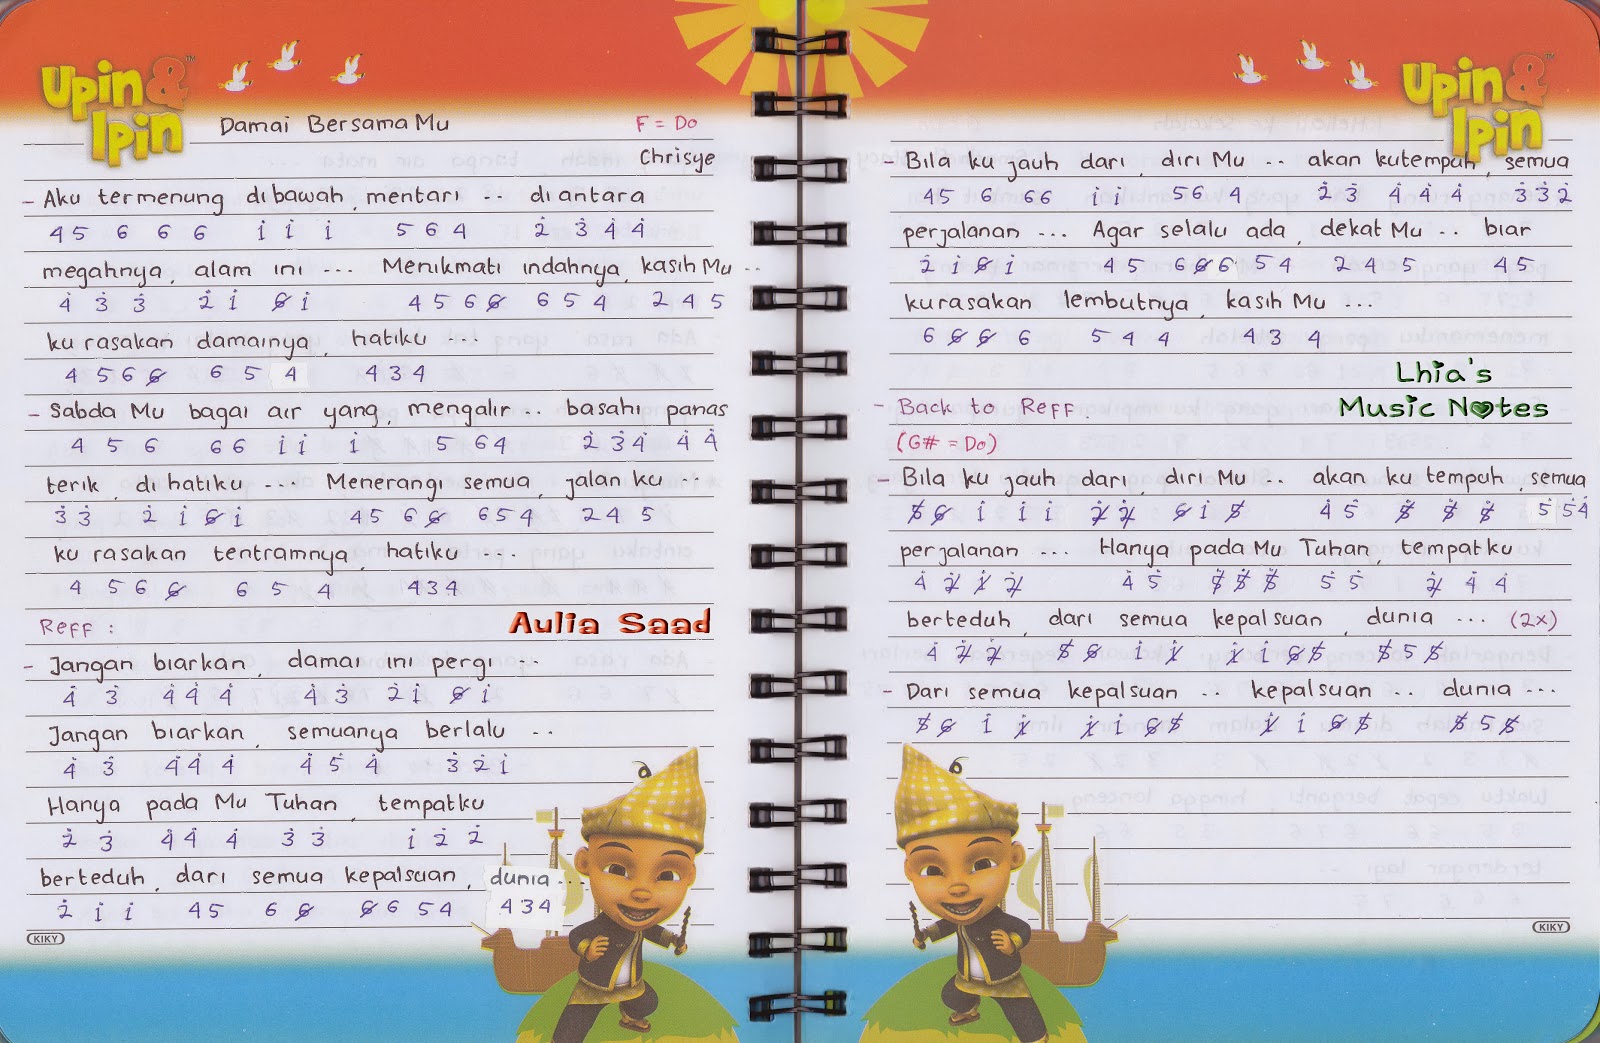 Upin & Ipin™
Damai BersamaMu F = Do
Chrisye
- Aku termenung dibawah, mentari .. diantara
4 5 6 6 6 1̇ 1̇ 1̇ 5 6 4 2̇ 3̇ 4̇ 4̇
megahnya, alam ini ... Menikmati indahnya, kasih Mu ..
4̇ 3̇ 3̇ 2̇ 1̇ 6̸ 1̇ 4 5 6 6̸ 6 5 4 2 4 5
ku rasakan damainya, hatiku ...
4 5 6 6̸ 6 5 4 4 3 4
- Sabda Mu bagai air yang, mengalir .. basahi panas
4 5 6 6 6 1̇ 1̇ 1̇ 5 6 4 2̇ 3̇ 4̇ 4̇ 4̇
terik, di hatiku ... Menerangi semua, jalan ku ..
3̇ 3̇ 2̇ 1̇ 6̸ 1̇ 4 5 6 6̸ 6 5 4 2 4 5
ku rasakan tentramnya, hatiku ...
4 5 6 6̸ 6 5 4 4 3 4
Reff :
Aulia Saad
- Jangan biarkan, damai ini pergi ..
4̇ 3̇ 4̇ 4̇ 4̇ 4̇ 3̇ 2̇ 1̇ 6̸ 1̇
Jangan biarkan, semuanya berlalu ..
4̇ 3̇ 4̇ 4̇ 4̇ 4̇ 5̇ 4̇ 3̇ 2̇ 1̇
Hanya pada Mu Tuhan, tempatku
2̇ 3̇ 4̇ 4̇ 4̇ 3̇ 3̇ 1̇ 2̇ 2̇
berteduh, dari semua kepalsuan, dunia ...
2̇ 1̇ 1̇ 4 5 6 6̸ 6̸ 6 5 4 4 3 4
KIKY
Upin & Ipin™
- Bila ku jauh dari, diri Mu .. akan kutempuh, semua
4 5 6 6 6 1̇ 1̇ 5 6 4 2̇ 3̇ 4̇ 4̇ 4̇ 3̇ 3̇ 2̇
perjalanan ... Agar selalu ada, dekat Mu .. biar
2̇ 1̇ 6̸ 1̇ 4 5 6 6̸ 6 5 4 2 4 5 4 5
kurasakan lembutnya, kasih Mu ...
6 6̸ 6̸ 6 5 4 4 4 3 4
Lhia's
Music Notes
- Back to Reff
(G# = Do)
- Bila ku jauh dari, diri Mu .. akan ku tempuh, semua
5̸ 6̸ 1̇ 1̇ 1̇ 2̸̇ 2̸̇ 6̸ 1̇ 5̸ 4̇ 5̇ 5̸̇ 5̸̇ 5̸̇ 5̇ 5̇ 4̇
perjalanan ... Hanya pada Mu Tuhan, tempatku
4̇ 2̸̇ 1̸̇ 2̸̇ 4̇ 5̇ 5̸̇ 5̸̇ 5̸̇ 5̇ 5̇ 2̸̇ 4̇ 4̇
berteduh, dari semua kepalsuan, dunia ... (2x)
4̇ 2̸̇ 2̸̇ 5̸ 6̸ 1̇ 1̸̇ 1̸̇ 1̇ 6̸ 5̸ 5̸ 5 5̸
- Dari semua kepalsuan .. kepalsuan .. dunia ...
5̸ 6̸ 1̇ 1̸̇ 1̸̇ 1̇ 6̸ 5̸ 1̸̇ 1̇ 6̸ 5̸ 5̸ 5 5̸
KIKY